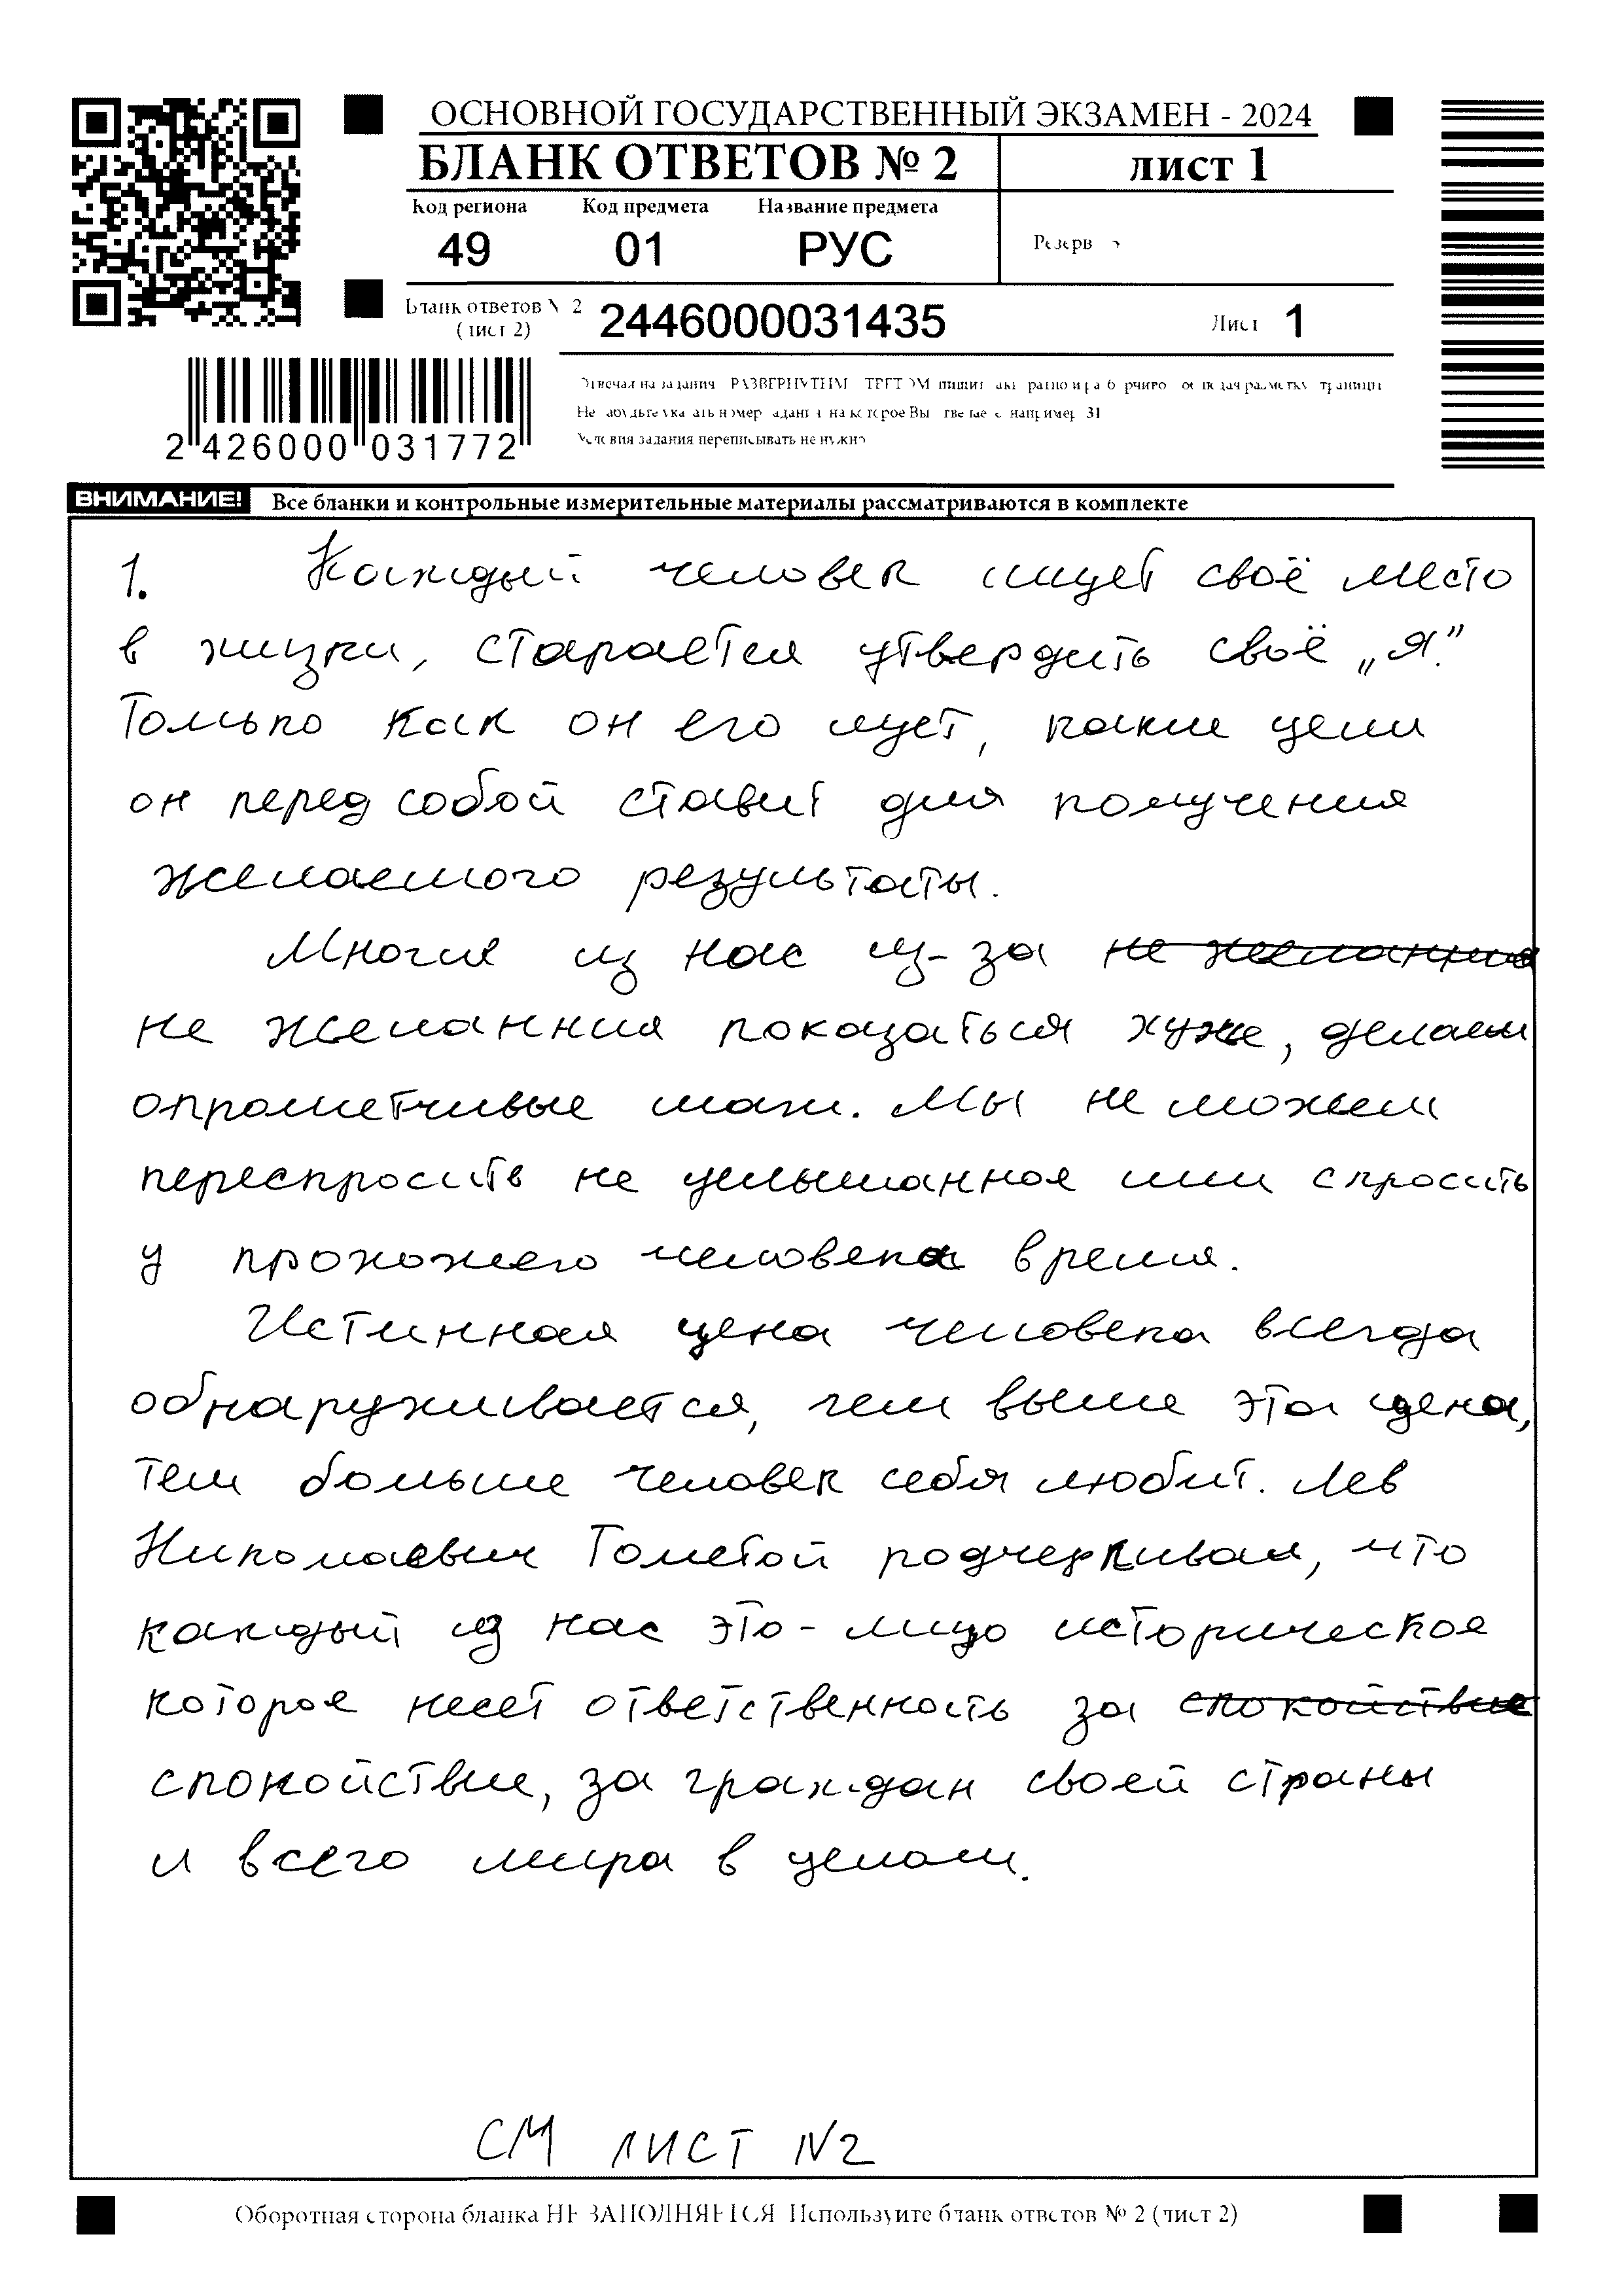 ОСНОВНОЙ ГОСУДАРСТВЕННЫЙ ЭКЗАМЕН - 2024
БЛАНК ОТВЕТОВ № 2
лист 1
Код региона Код предмета Название предмета
49 01 РУС
Резерв
Бланк ответов № 2
(лист 2)
2446000031435
Лист 1
2 426000 031772
Условия задания переписывать не нужно
ВНИМАНИЕ! Все бланки и контрольные измерительные материалы рассматриваются в комплекте
1. Каждый человек ищет своё место
в жизни, старается утвердить своё „я".
Только как он его ищет, какие цели
он перед собой ставит для получения
желаемого результаты.
Многие из нас из-за не желанния
не желанния показаться хуже, делаем
опрометчивые шаги. Мы не можем
переспросить не услышанное или спросить
у прохожего человека время.
Истинная цена человека всегда
обнаруживается, чем выше эта цена,
тем больше человек себя любит. Лев
Николаевич Толстой подчеркивал, что
каждый из нас это - лицо историческое
которое несет ответственность за спокойствие
спокойствие, за граждан своей страны
и всего мира в целом.
СМ ЛИСТ N2
Оборотная сторона бланка НЕ ЗАПОЛНЯЕТСЯ Используйте бланк ответов № 2 (лист 2)